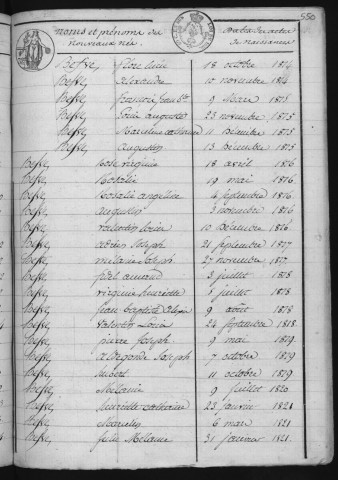 550
noms et prénoms des nouveaux nés.
dates des actes de naissances
Besse, flore lucie 18 octobre 1814
Besse, Alexandre 10 novembre 1814
Besse, françois 9 Mars 1815
Besse, Louis auguste 23 novembre 1815
Besse, Marceline catherine 11 Décembre 1815
Besse, Augustin 13 Décembre 1815
Besse, Rose virginie 18 avril 1816
Besse, Rosalie 19 mai 1816
Besse, Rosalie angeline 4 septembre 1816
Besse, augustin 3 novembre 1816
Besse, valentin 10 Décembre 1816
Besse, adrien Joseph 21 septembre 1817
Besse, mélanie Joseph 27 novembre 1817
Besse, fidel amand 3 juillet 1818
Besse, virginie henriette 8 juillet 1818
Besse, jean baptiste 9 août 1818
Besse, valentin Louis 24 septembre 1818
Besse, pierre Joseph 9 mai 1819
Besse, aldegonde Joseph 7 octobre 1819
Besse, hubert 11 octobre 1819
Besse, Mélanie 9 juillet 1820
Besse, henriette catherine 23 janvier 1821
Besse, Marcelin 6 mars 1821
Besse, Julie Mélanie 31 janvier 1821